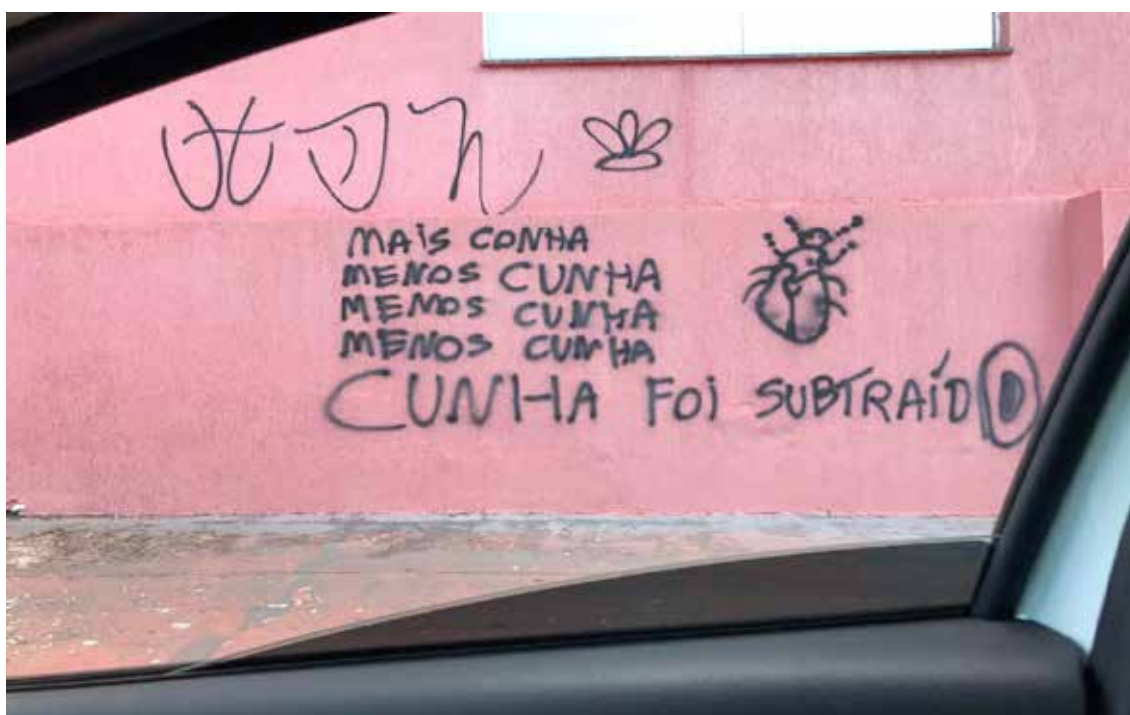 MAIS CONHA
MENOS CUNHA
MENOS CUNHA
MENOS CUNHA
CUNHA FOI SUBTRAÍDO